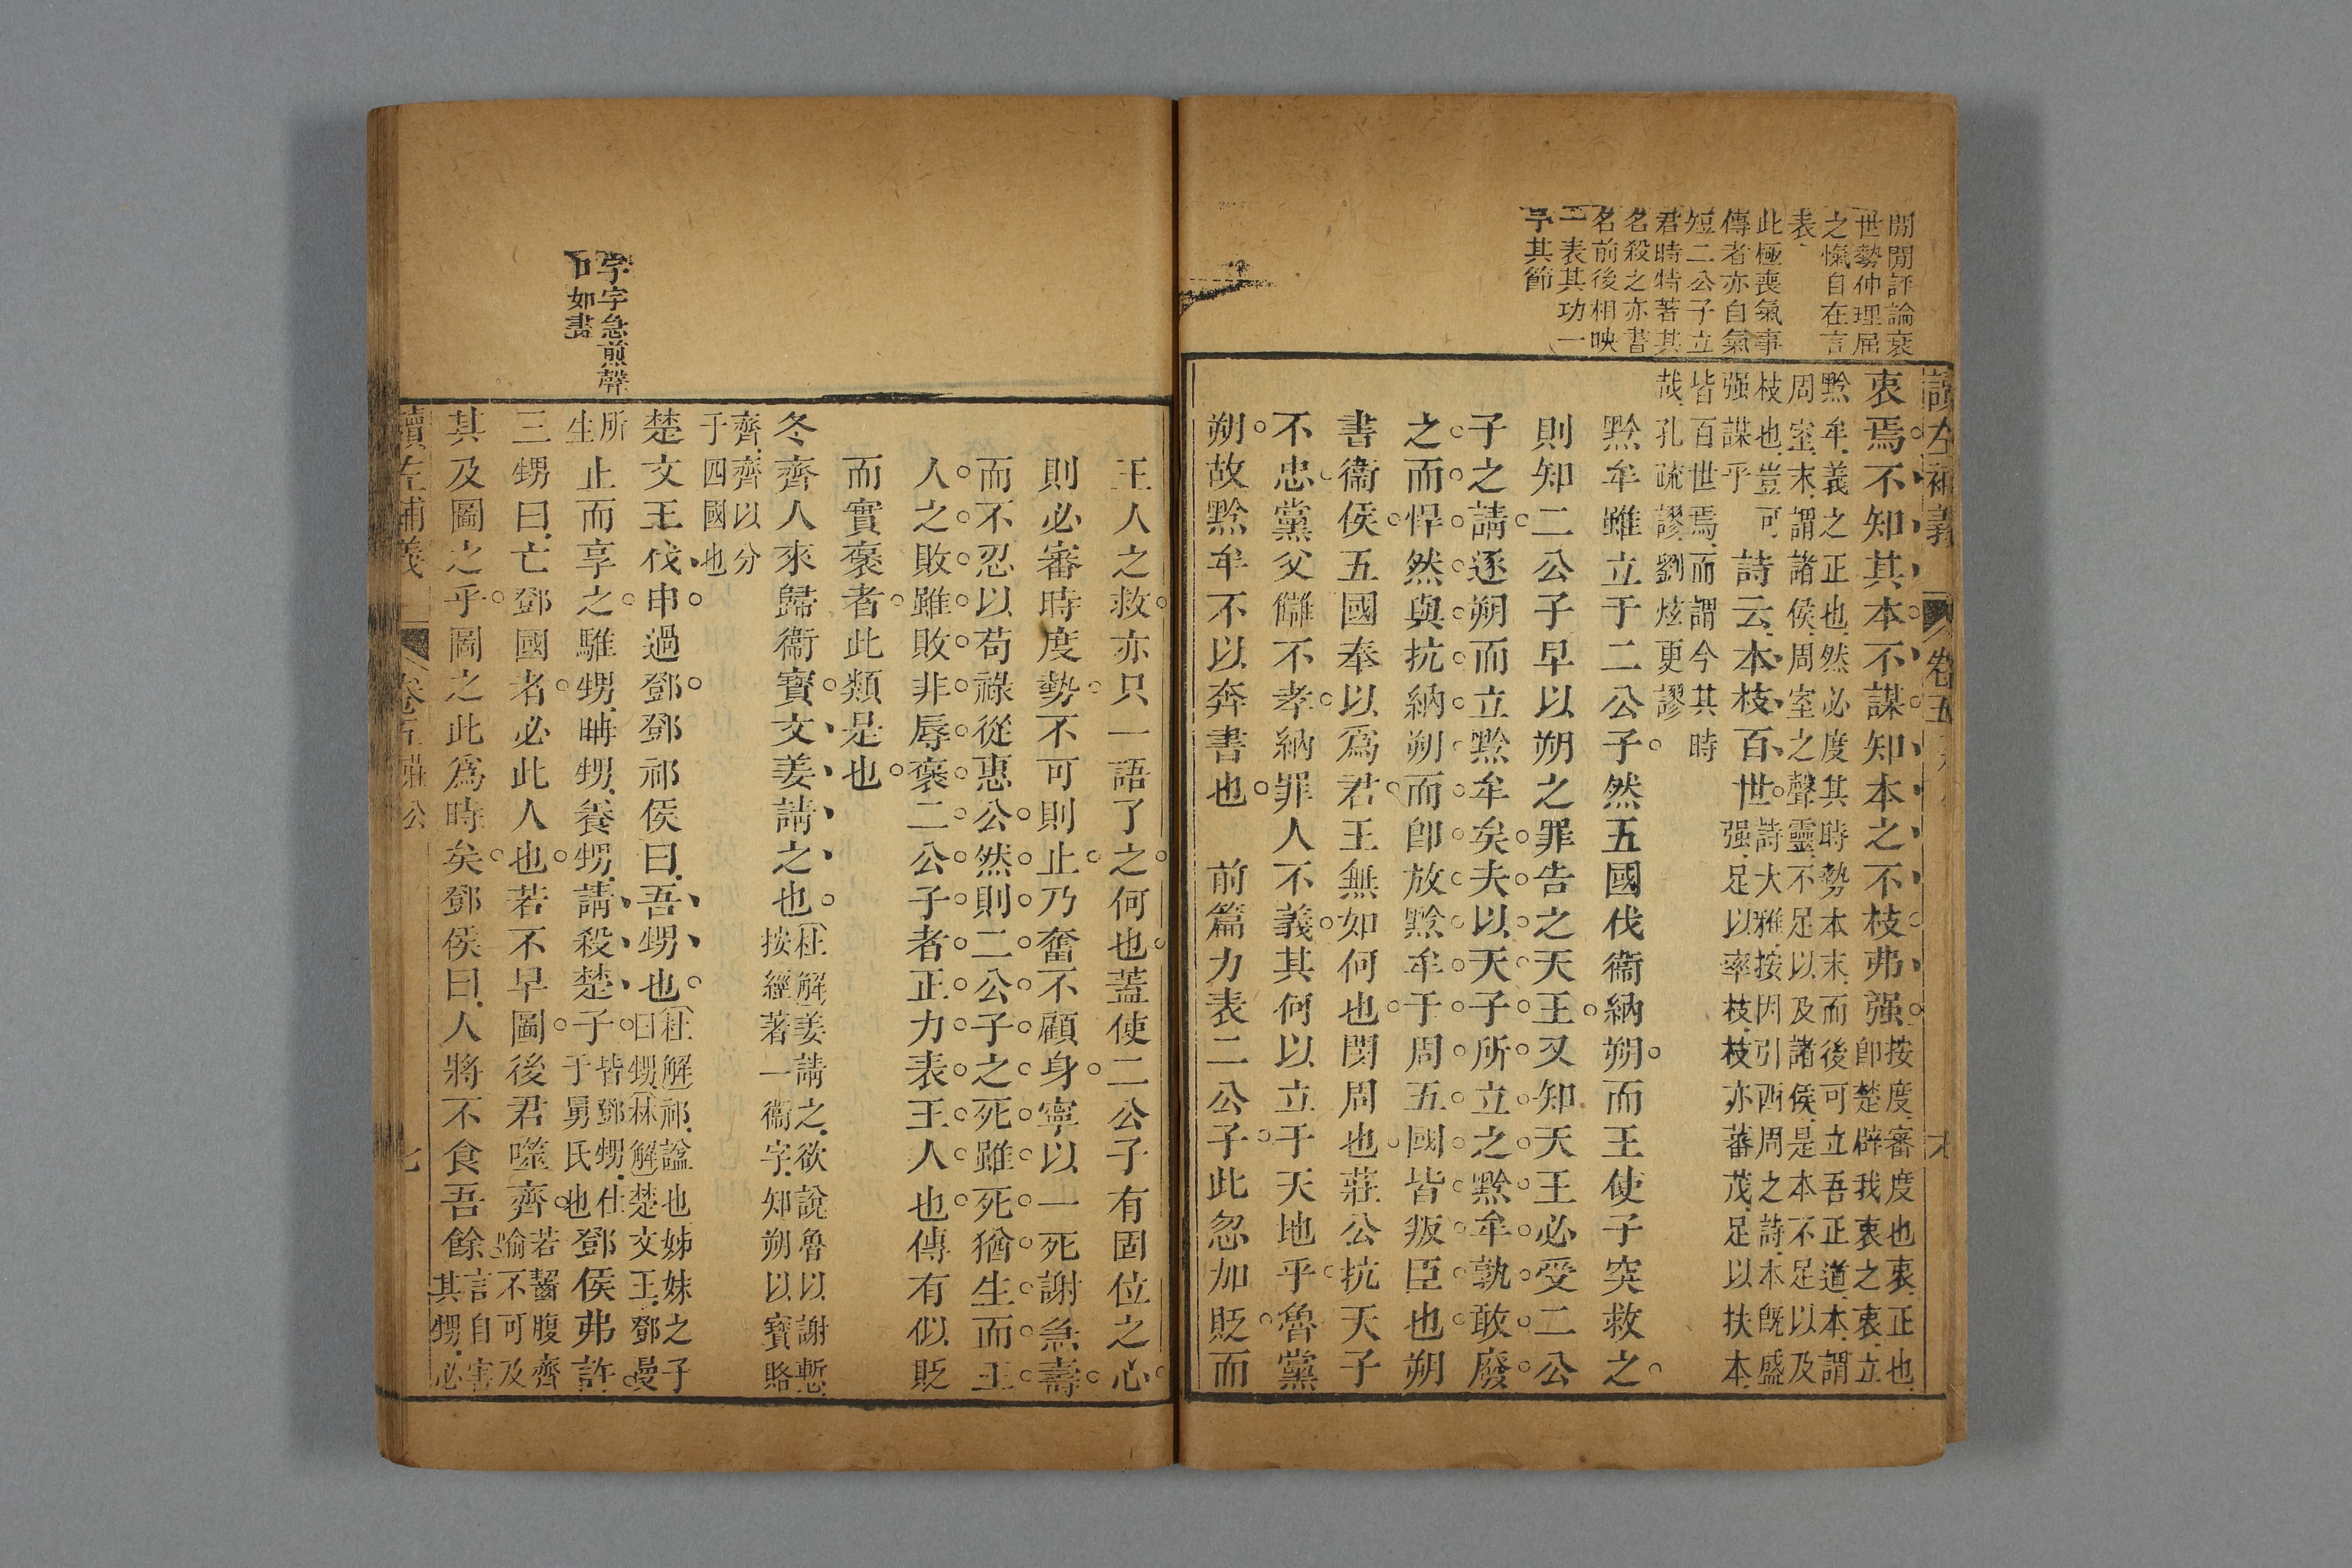 閒閒評論衰
世勢仲理屈
之愾自在言
表
此極喪氣事
傳者亦自氣
短二公子立
君時特著其
名殺之亦書
名前後相映
一表其功一
予其節
讀左補義
卷五
衷焉不知其本不謀知本之不枝弗强按度審度也衷正也
卽楚辟我衷之衷立
黔牟義之正也然必度其時勢本末而後可立吾正道本謂
周室末謂諸侯周室之聲靈不足以及諸侯是本不足以及
枝也豈可
强謀乎
詩云本枝百世詩大雅按因引西周之詩本旣盛
强足以率枝枝亦蕃茂足以扶本
皆百世焉而謂今其時
哉孔疏謬劉炫更謬
黔牟雖立于二公子然五國伐衞納朔而王使子突救之
則知二公子早以朔之罪告之天王又知天王必受二公
子之請逐朔而立黔牟矣夫以天子所立之黔牟孰敢廢
之而悍然與抗納朔而卽放黔牟于周五國皆叛臣也朔
書衞侯五國奉以爲君王無如何也閔周也莊公抗天子
不忠黨父讎不孝納罪人不義其何以立于天地乎魯黨
朔故黔牟不以奔書也 前篇力表二公子此忽加貶而
王人之救亦只一語了之何也蓋使二公子有固位之心
則必審時度勢不可則止乃奮不顧身寧以一死謝急壽
而不忍以苟祿從惠公然則二公子之死雖死猶生而王
人之敗雖敗非辱褒二公子者正力表王人也傳有似貶
而實褒者此類是也
冬齊人來歸衞寶文姜請之也杜解姜請之欲說魯以謝慙
按經著一衞字知朔以寶賂
齊齊以分
于四國也
字字急煎聲
口如畫
楚文王伐申過鄧鄧祁侯曰吾甥也杜解祁謚也姊妹之子
曰甥林解楚文王鄧曼
所
生
止而享之騅甥聃甥養甥請殺楚子皆鄧甥仕
于舅氏也
鄧侯弗許
三甥曰亡鄧國者必此人也若不早圖後君噬齊若齧腹齊
喻不可及
其及圖之乎圖之此爲時矣鄧侯曰人將不食吾餘言自害
其甥必
讀左補義
卷五莊公
七